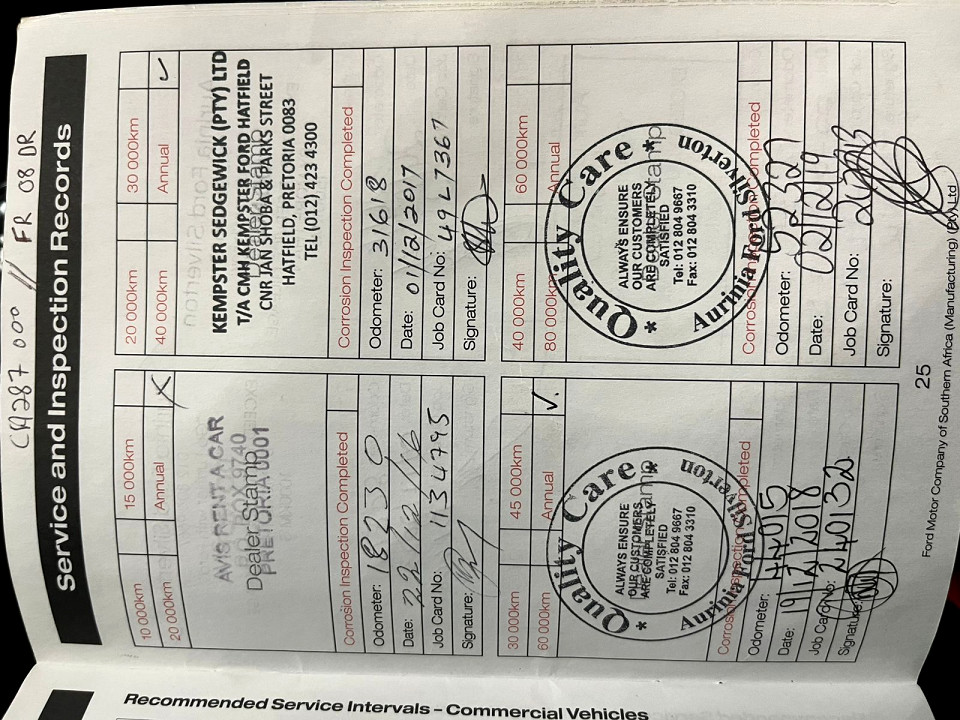 CA287 000 // FR 08 DR
Service and Inspection Records
10 000km
15 000km
20 000km
Annual X
AVIS RENT A CAR
Dealer Stamp
BOX 9740
PRETORIA 0001
Corrosion Inspection Completed
Odometer: 18230
Date: 22/12/16
Job Card No: 1134795
Signature:
20 000km
30 000km
40 000km
Annual ✓
KEMPSTER SEDGEWICK (PTY) LTD
T/A CMH KEMPSTER FORD HATFIELD
Dealer Stamp
CNR JAN SHOBA & PARKS STREET
HATFIELD, PRETORIA 0083
TEL (012) 423 4300
Corrosion Inspection Completed
Odometer: 31618
Date: 01/12/2017
Job Card No: 49L7367
Signature:
30 000km
45 000km
60 000km
Annual ✓
Quality Care
ALWAYS ENSURE
OUR CUSTOMERS
ARE COMPLETELY
SATISFIED
Tel: 012 804 9667
Fax: 012 804 3310
* Aurinia Ford Silverton *
Corrosion Inspection Completed
Odometer: 44015
Date: 19/12/2018
Job Card No: 24032
Signature:
40 000km
60 000km
80 000km
Annual
Quality Care
ALWAYS ENSURE
OUR CUSTOMERS
ARE COMPLETELY
SATISFIED
Tel: 012 804 9667
Fax: 012 804 3310
* Aurinia Ford Silverton *
Corrosion Inspection Completed
Odometer:
Date: 02/12/19
Job Card No:
Signature:
25
Ford Motor Company of Southern Africa (Manufacturing) (Pty) Ltd
Recommended Service Intervals – Commercial Vehicles